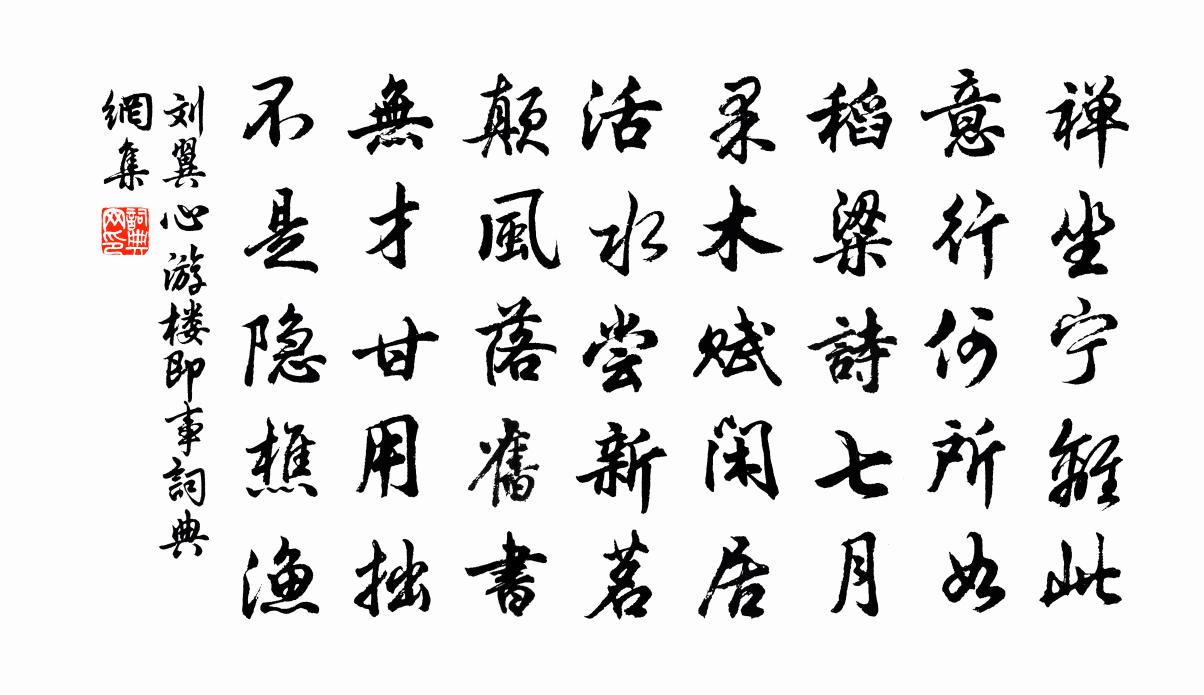 禅坐宁離此
意行何所如
稻粱詩七月
果木赋闲居
活水尝新茗
颠風落舊書
無才甘用拙
不是隐樵漁
刘翼心游楼即事詞典
網集
詞典网印